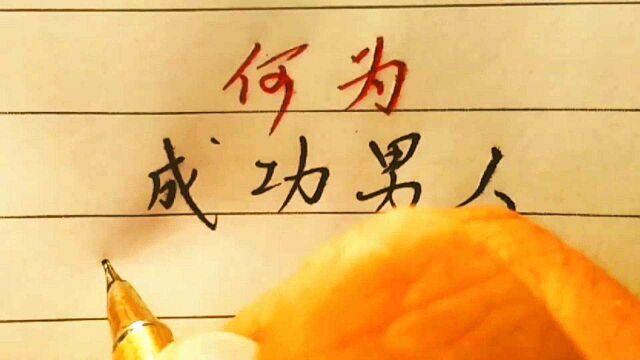 何为
成功男人